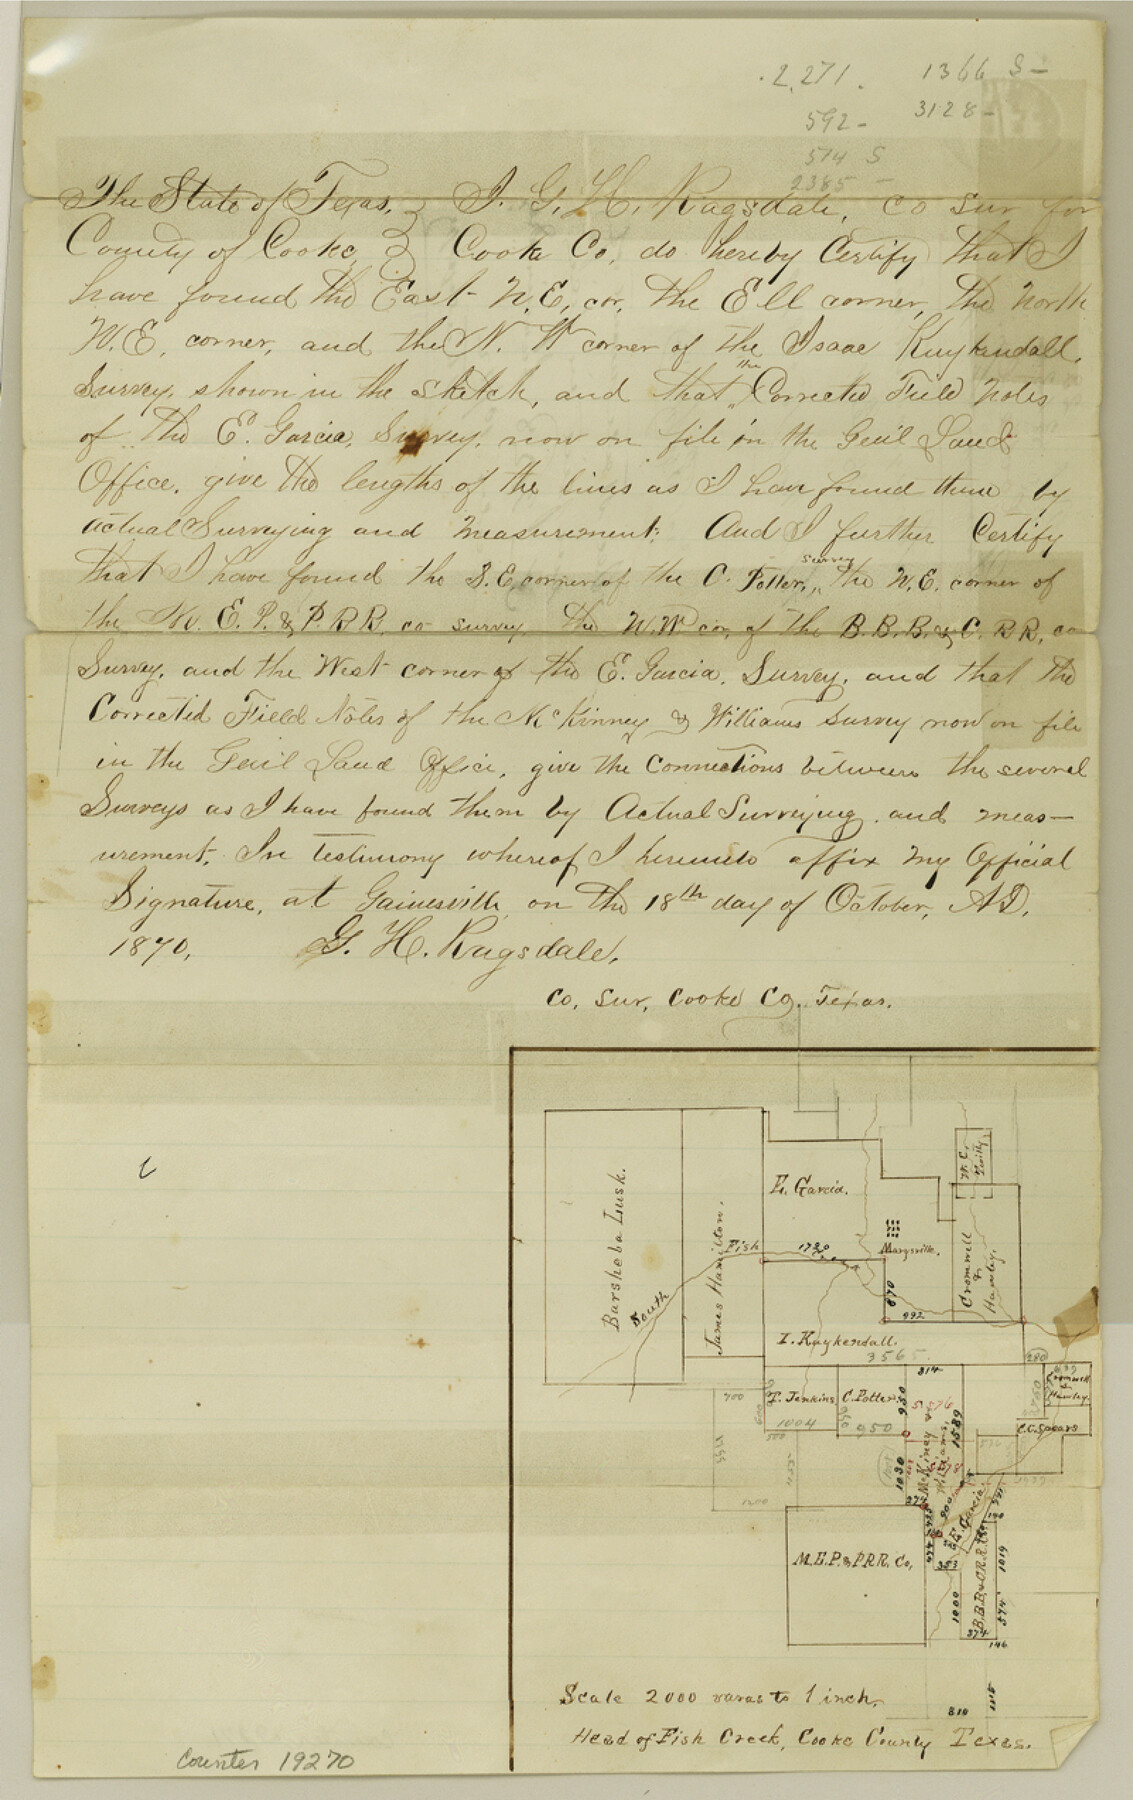 2,271. 1366 S—
592- 3128-
574 S
2385 -
The State of Texas, I. G. H. Ragsdale, co sur for
County of Cooke, Cooke Co, do hereby Certify that I
have found the East N.E. cor, the Ell corner, the North
N.E. corner, and the N. W corner of the Isaac Kuykendall,
Survey, shown in the sketch, and that the Corrected Field Notes
of the E. Garcia, Survey, now on file in the Genl Land
Office, give the lengths of the lines as I have found them by
actual Surveying and measurement; And I further Certify
that I have found the S.E. corner of the C. Potter, survey the N.E. corner of
the M. E. P. & P. RR. co survey the N.W cor, of the B. B. B. & C. RR. co
Survey, and the West corner of the E. Garcia, Survey, and that the
Corrected Field Notes of the McKinney & Williams Survey now on file
in the Genl Land Office, give the Connections between the several
Surveys as I have found them by Actual Surveying, and meas—
urement, In testimony whereof I hereunto affix my Official
Signature, at Gainesville, on the 18th day of October, AD,
1870, G. H. Ragsdale,
Co, Sur, Cooke Co, Texas.
Barsheba Lusk.
James Hamilton.
E. Garcia.
Cromwell & Hawley.
South Fish
1720
Marysville.
870
992
I. Kuykendall.
3565
814
280
T. Jenkins
1004
C. Potter
950
950
McKiney & Williams,
1589
Cromwell & Hawley.
C.C. Spears
700
500
1200
1030
274
M.E.P.&P.RR. Co,
474
900
E. Garcia
353
140
B.B.B.&C.R.R.Co
1019
1000
574
374
146
1115
810
Scale 2000 varas to 1 inch.
Head of Fish Creek, Cooke County Texas.
Counter 19270